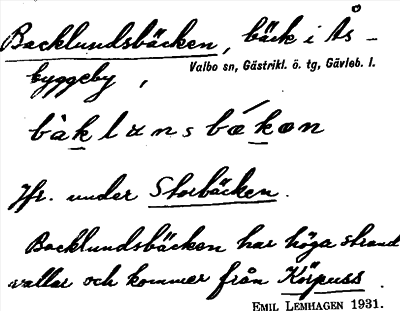 Backlundsbäcken, bäck i Ås-
byggeby,
Valbo sn, Gästrikl. ö. tg, Gävleb. l.
bàklʉnsbǽkən
Jfr. under Storbäcken.
Backlundsbäcken har höga strand
vallar och kommer från Körpuss.
EMIL LEMHAGEN 1931.